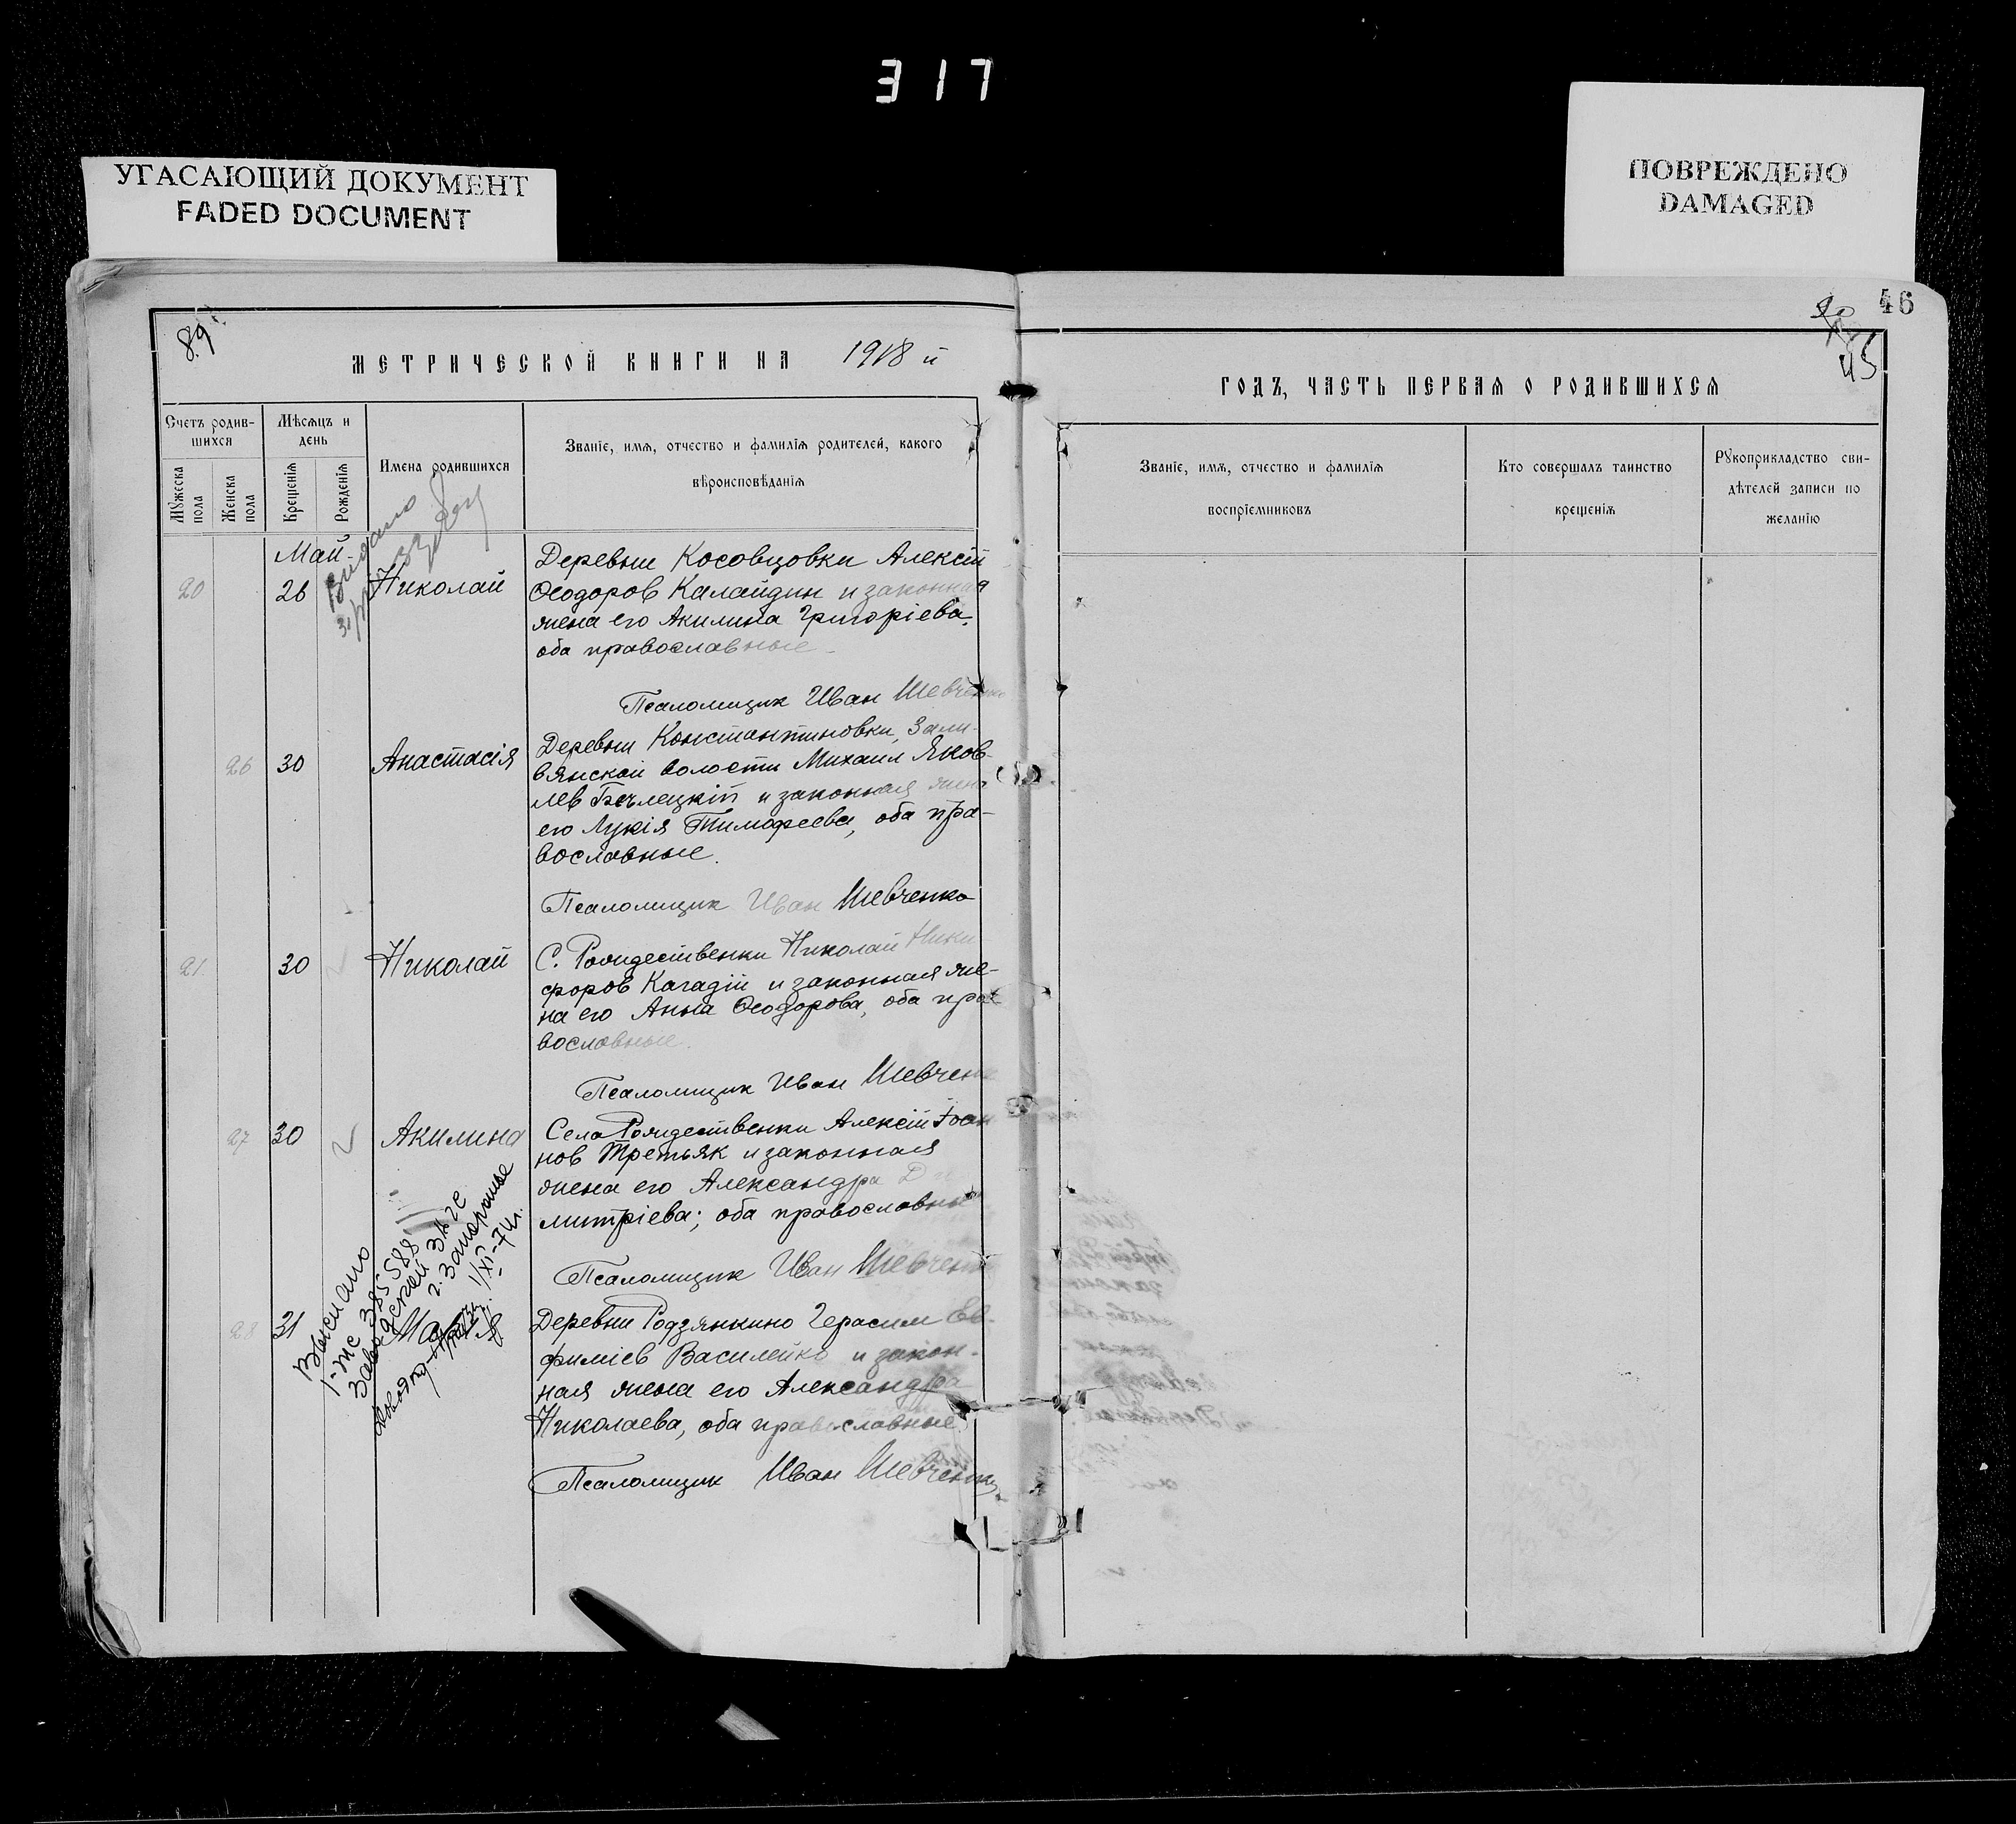 317
УГАСАЮЩИЙ ДОКУМЕНТ
FADED DOCUMENT
ПОВРЕЖДЕНО
DAMAGED
46
45
89
МЕТРИЧЕСКОЙ КНИГИ НА 1918 й
ГОДЪ, ЧАСТЬ ПЕРВАЯ О РОДИВШИХСЯ
Счетъ родив-
шихся
Мужеска пола
Женска пола
Мѣсяцъ и
день
Крещенія
Рожденія
Имена родившихся
Званіе, имя, отчество и фамилія родителей, какого
вѣроисповѣданія
Званіе, имя, отчество и фамилія
воспріемниковъ
Кто совершалъ таинство
крещенія
Рукоприкладство сви-
дѣтелей записи по
желанію
Май
20 26 Николай
Деревни Косовцовки Алексій
Ѳеодоров Калайдин и законная
жена его Акилина Григоріева,
оба православные
Псаломщик Иван Шевченко
26 30 Анастасія
Деревни Константиновки, Зали-
вянской волости Михаил Яков-
лев и законная жена
его Лукія Тимофеева, оба пра-
вославные.
Псаломщик Иван Шевченко
21 30 Николай
С. Рождественки Николай Ники-
форов Кагадій и законная же-
на его Анна Ѳеодорова, оба пра-
вославные.
Псаломщик Иван Шевченко
27 30 Акилина
Села Рождественки Алексій Іоан
нов Третьяк и законная
жена его Александра Д
митріева; оба православные
Псаломщик Иван Шевченко
28 31
Выписано
385588
г. Запорожье
Деревни Родзянкино Герасим Ев-
фиміев Василейко и закон-
ная жена его Александра
Николаева, оба православные
Псаломщик Иван Шевченко